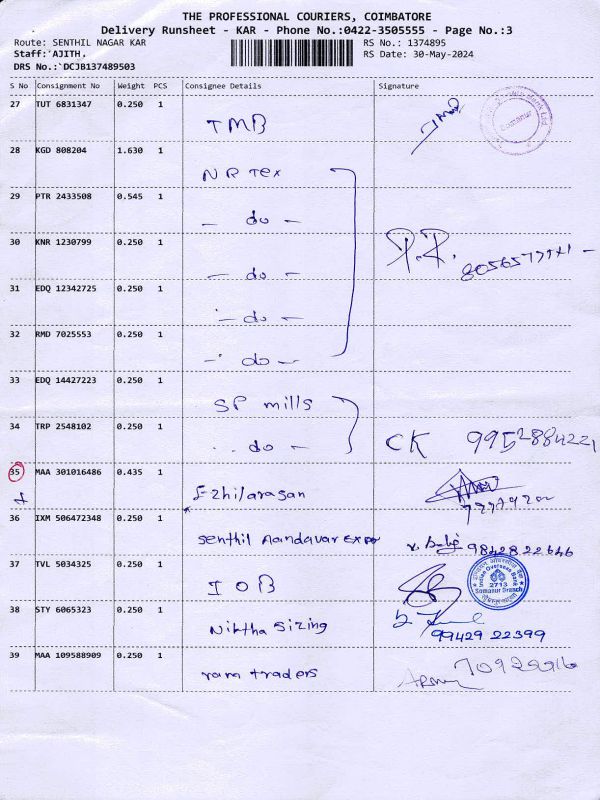 THE PROFESSIONAL COURIERS, COIMBATORE
Delivery Runsheet - KAR - Phone No.:0422-3505555 - Page No.:3
Route: SENTHIL NAGAR KAR
RS No.: 1374895
Staff:'AJITH.
RS Date: 30-May-2024
DRS No.:`DCJB137489503
S No Consignment No Weight PCS Consignee Details Signature
27 TUT 6831347 0.250 1
TMB
28 KGD 808204 1.630 1
NR Tex
29 PTR 2433508 0.545 1
- do -
30 KNR 1230799 0.250 1
- do -
31 EDQ 12342725 0.250 1
- do -
32 RMD 7025553 0.250 1
- do -
33 EDQ 14427223 0.250 1
SP mills
34 TRP 2548102 0.250 1
do - CK 9952884221
35 MAA 301016486 0.435 1
Ezhilarasan
36 IXM 506472348 0.250 1
Senthil Aandavar Expo 9842822646
37 TVL 5034325 0.250 1
IOB
Indian Overseas Bank
2713
Somanur Branch
38 STY 6065323 0.250 1
Niktha Sizing
99429 22399
39 MAA 109588909 0.250 1
ram traders